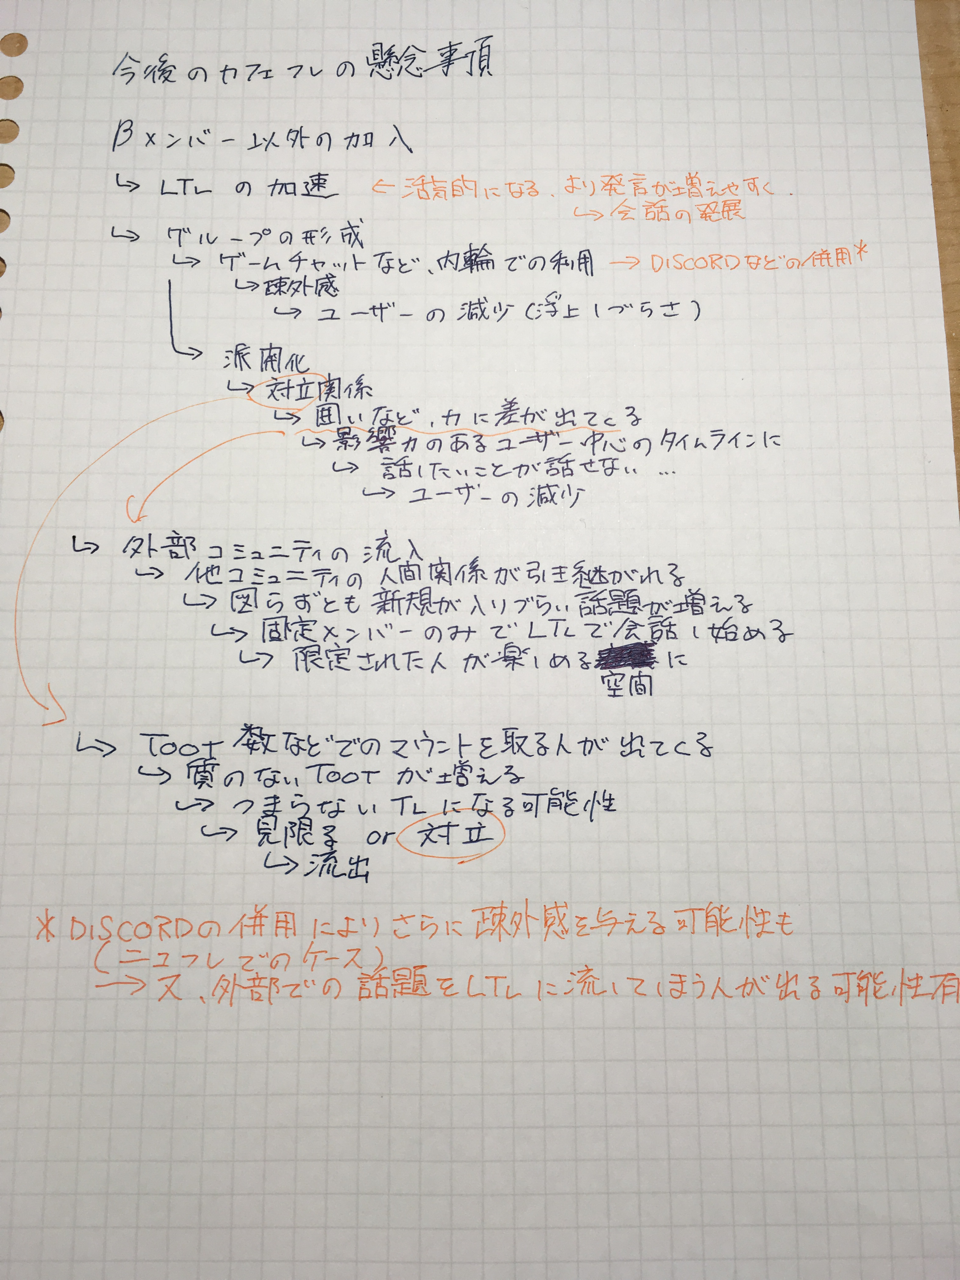 今後のカフェフレの懸念事項
βメンバー以外の加入
↳ LTLの加速 ← 活気的になる、より発言が増えやすく.
↳ 会話の発展
↳ グループの形成
↳ ゲームチャットなど、内輪での利用 → DISCORDなどの併用*
↳ 疎外感
↳ ユーザーの減少(浮上しづらさ)
↳ 派閥化
↳ 対立関係
↳ 囲いなど、力に差が出てくる
↳ 影響力のあるユーザー中心のタイムラインに
↳ 話したいことが話せない...
↳ ユーザーの減少
↳ 外部コミュニティの流入
↳ 他コミュニティの人間関係が引き継がれる
↳ 図らずとも新規が入りづらい話題が増える
↳ 固定メンバーのみでLTLで会話し始める
↳ 限定された人が楽しめる に
空間
↳ TOOT数などでのマウントを取る人が出てくる
↳ 質のないTOOTが増える
↳ つまらないTLになる可能性
↳ 見限る or 対立
↳ 流出
* DISCORDの併用によりさらに疎外感を与える可能性も
(ニュフレでのケース)
→ 又、外部での話題をLTLに流してしまう人が出る可能性有